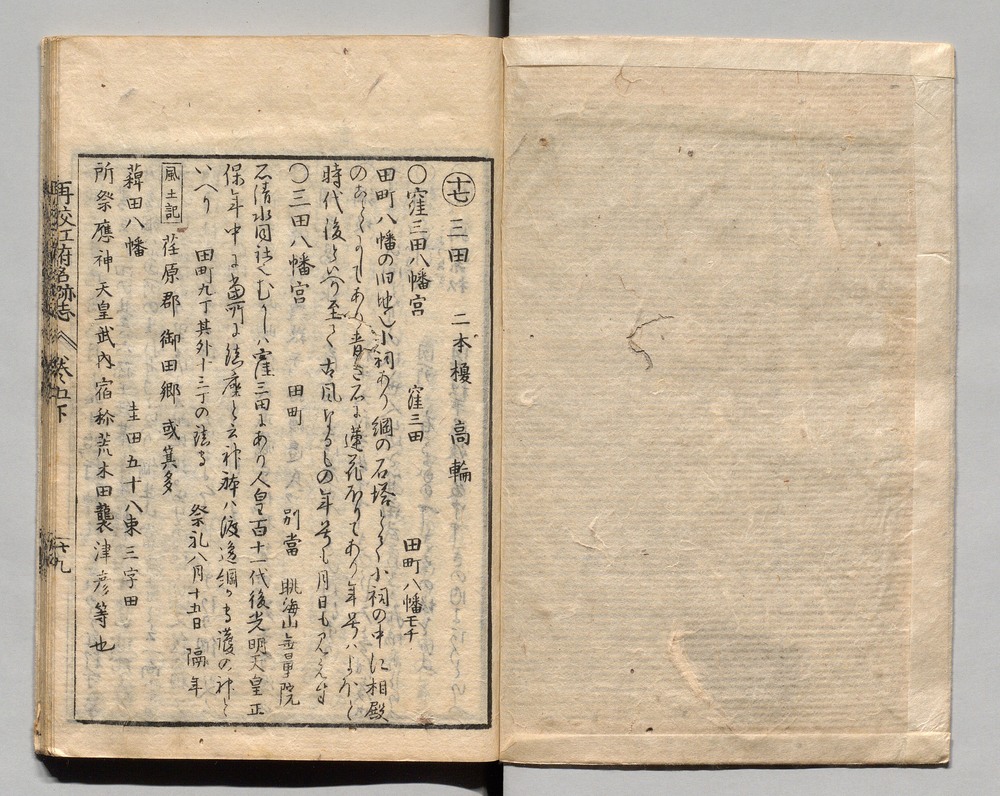 十七 三田 二本榎 高輪
〇窪三田八幡宮 窪三田 田町八幡モチ
田町八幡の旧地也小祠あり綱の石塔とて小祠の中に相殿
のことくにてあり青き石に蓮花ほりてあり年号ハ
時代後と いへり至て古風なるもの年号も月日も見えす
〇三田八幡宮 田町 別當 眺海山無量院
石清水同社也むかしハ窪三田にあり人皇百十一代後光明天皇正
保年中に當所に鎮座と云神躰ハ渡邉綱か守護の神と
いへり 田町九丁其外十三丁の鎮守 祭礼八月十五日 隔年
風土記 荏原郡 御田郷 或箕多
薭田八幡 圭田五十八束三字田
所祭應神天皇武内宿祢荒木田襲津彦等也
再校江府名跡志 巻五下 十九